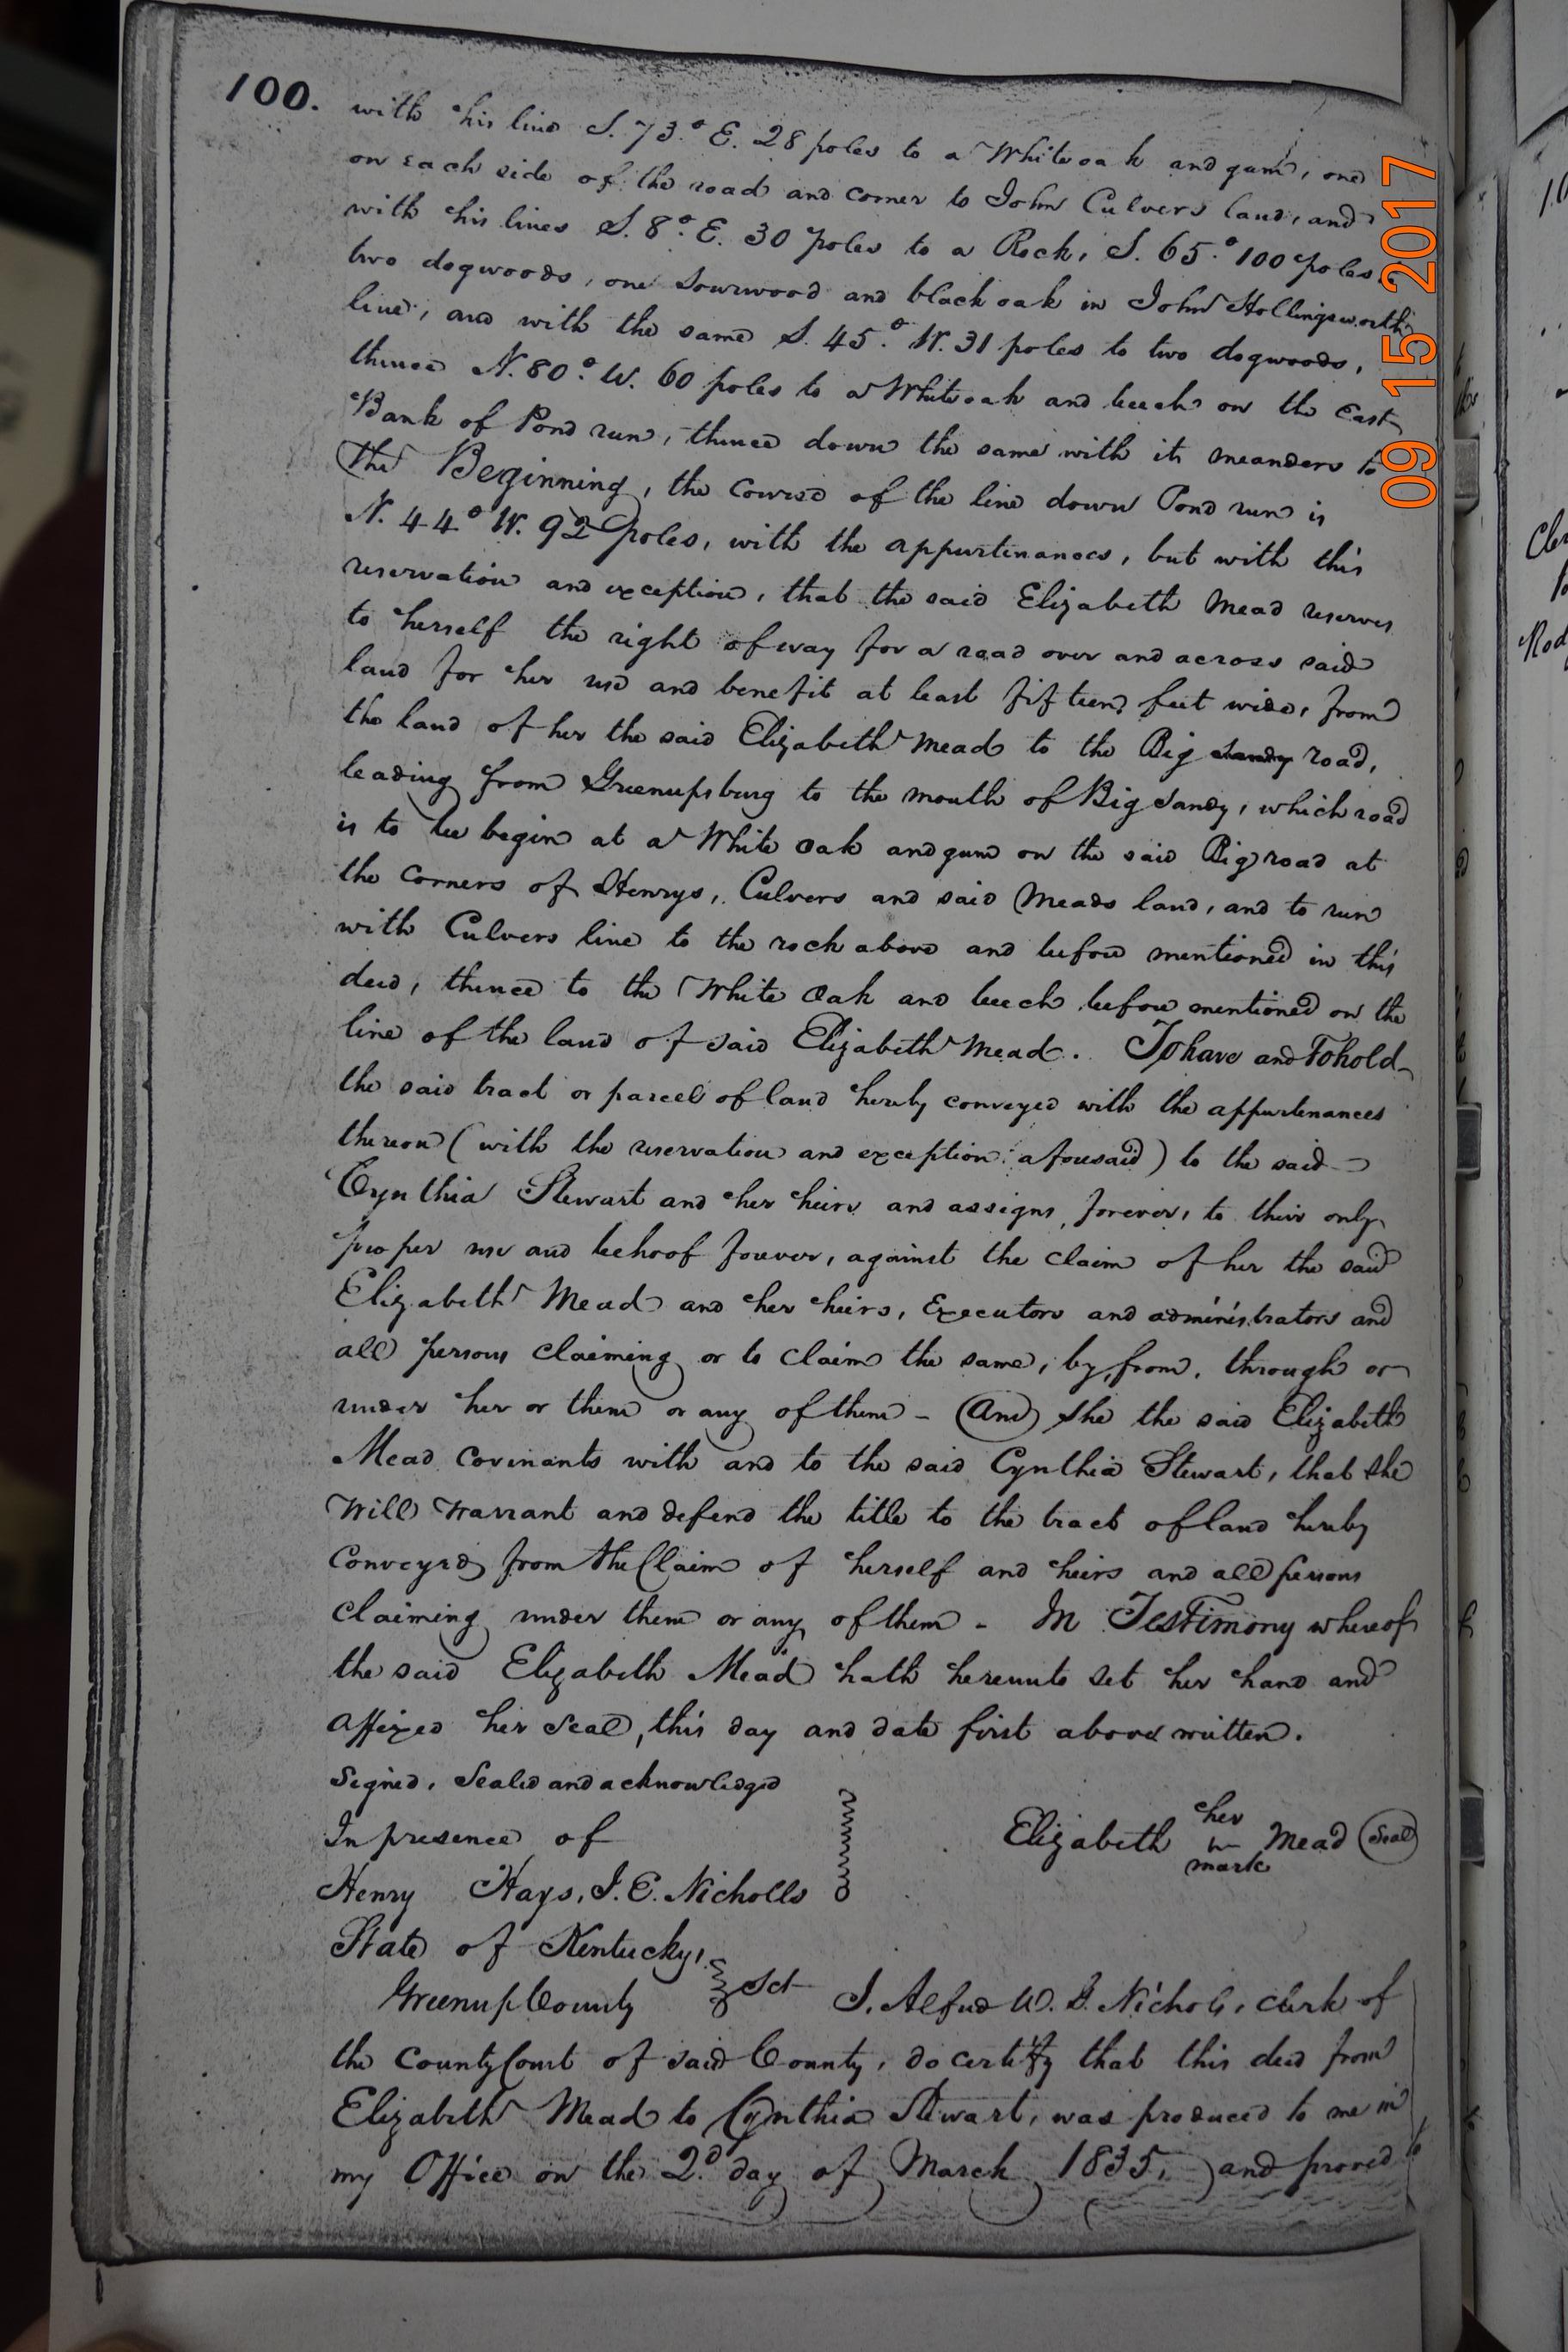 100.
with his line S. 73.° E. 28 poles to a Whiteoak and gum, one
on each side of the road and corner to John Culvers land, and
with his lines S. 8.° E. 30 poles to a Rock, S. 65.° 100 poles
two dogwoods, one sourwood and black oak in John Hollingsworth
line, and with the same S. 45.° W. 31 poles to two dogwoods,
thence N. 80.° W. 60 poles to a Whiteoak and beech on the East
Bank of Pond run, thence down the same with its meanders to
The Beginning, the course of the line down Pond run is
N. 44° W. 92 poles, with the appurtenances, but with this
reservation and exception, that the said Elizabeth Mead reserves
to herself the right of way for a road over and across said
land for her use and benefit at least fifteen feet wide, from
the land of her the said Elizabeth Mead to the Big Sandy road,
leading from Greenupsburg to the mouth of Big Sandy, which road
is to be begin at a White Oak and gum on the said Big road at
the corners of Henrys, Culvers and said Meads land, and to run
with Culvers line to the rock above and before mentioned in this
deed, thence to the White Oak and beech before mentioned on the
line of the land of said Elizabeth Mead. To have and To hold
the said tract or parcel of land hereby conveyed with the appurtenances
thereon (with the reservation and exception aforesaid) to the said
Cynthia Stewart and her heirs and assigns, forever, to their only
proper use and behoof forever, against the claim of her the said
Elizabeth Mead and her heirs, Executors and administrators and
all persons claiming or to claim the same, by, from, through or
under her or them or any of them - And she the said Elizabeth
Mead covenants with and to the said Cynthia Stewart, that she
will warrant and defend the title to the tract of land hereby
conveyed from the Claim of herself and heirs and all persons
claiming under them or any of them - In Testimony whereof
the said Elizabeth Mead hath hereunto set her hand and
affixed her seal, this day and date first above written.
Signed, Sealed and acknowledged
In presence of
Elizabeth her mark Mead (Seal)
Henry Hays, J. E. Nicholls
State of Kentucky,
Greenup County Sct I, Alfred W. G. Nichols, clerk of
the County Court of said County, do certify that this deed from
Elizabeth Mead to Cynthia Stewart, was produced to me in
my Office on the 2.d day of March 1835, and proved
09 15 2017